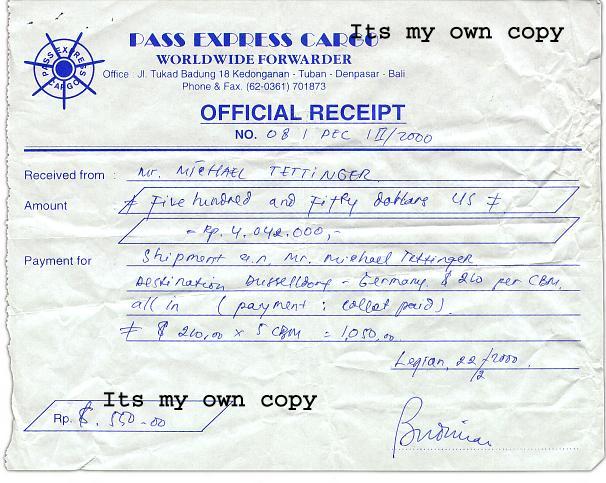 Its my own copy
PASS EXPRESS CARGO
WORLDWIDE FORWARDER
Office Jl. Tukad Badung 18 Kedonganan - Tuban - Denpasar - Bali
Phone & Fax. (62-0361) 701873
PASS EXPRESS CARGO
OFFICIAL RECEIPT
NO. 08 / PEC / II / 2000
Received from : Mr. MICHAEL TETTINGER
Amount # Five hundred and Fifty dollars US #
= Rp. 4.042.000,-
Payment for Shipment a.n. Mr. Michael Tettinger
Destination Dusseldorf - Germany. $ 210 per CBM.
all in (payment : collat paid).
# $ 210,00 x 5 CBM = 1,050.00
Legian, 22/2/2000
Its my own copy
Rp. $. 550.00